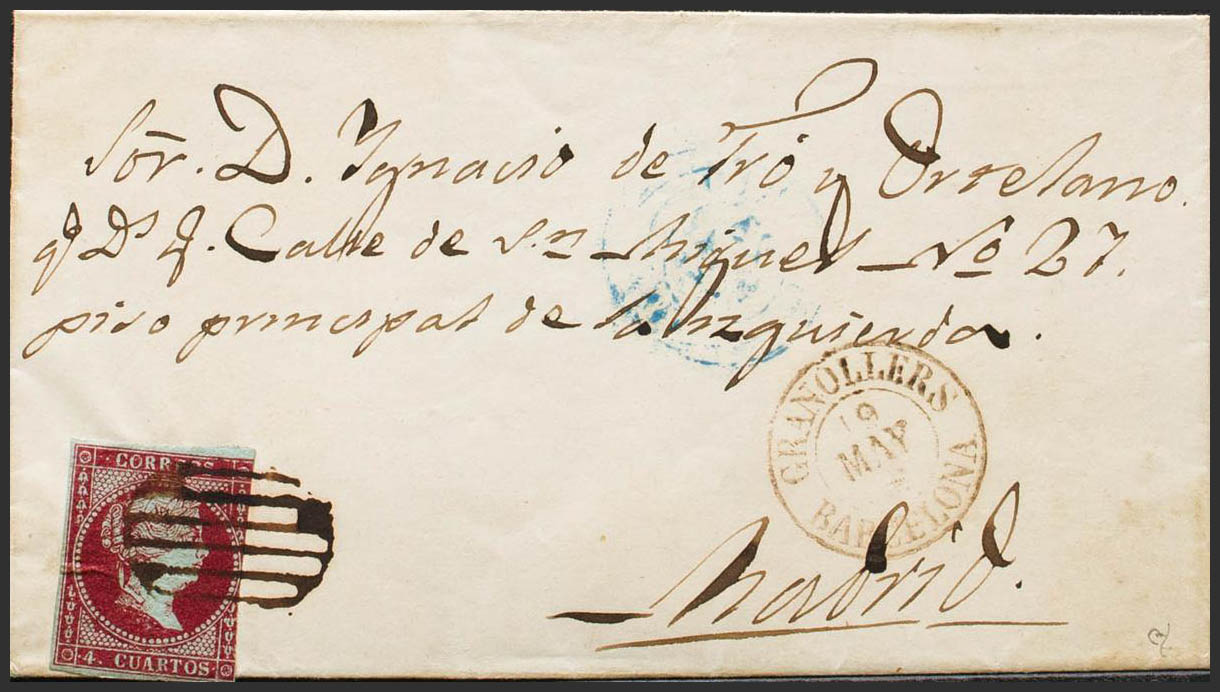 Sor. D. Ignacio de Tró y Ortolano.
q Ds g. Calle de Sn Miguel No 27.
piso principal de la Izquierda.
GRANOLLERS
19
MAY
BARCELONA
Madrid.
CORREOS
4. CUARTOS